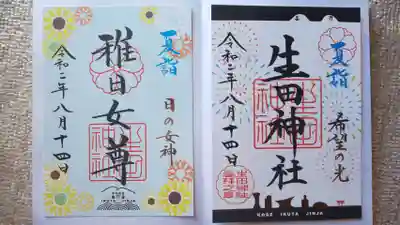 夏詣
稚日女尊
日の女神
令和二年八月十四日
IKUTA JINJA
夏詣
生田神社
希望の光
令和二年八月十四日
KOBE IKUTA JINJA